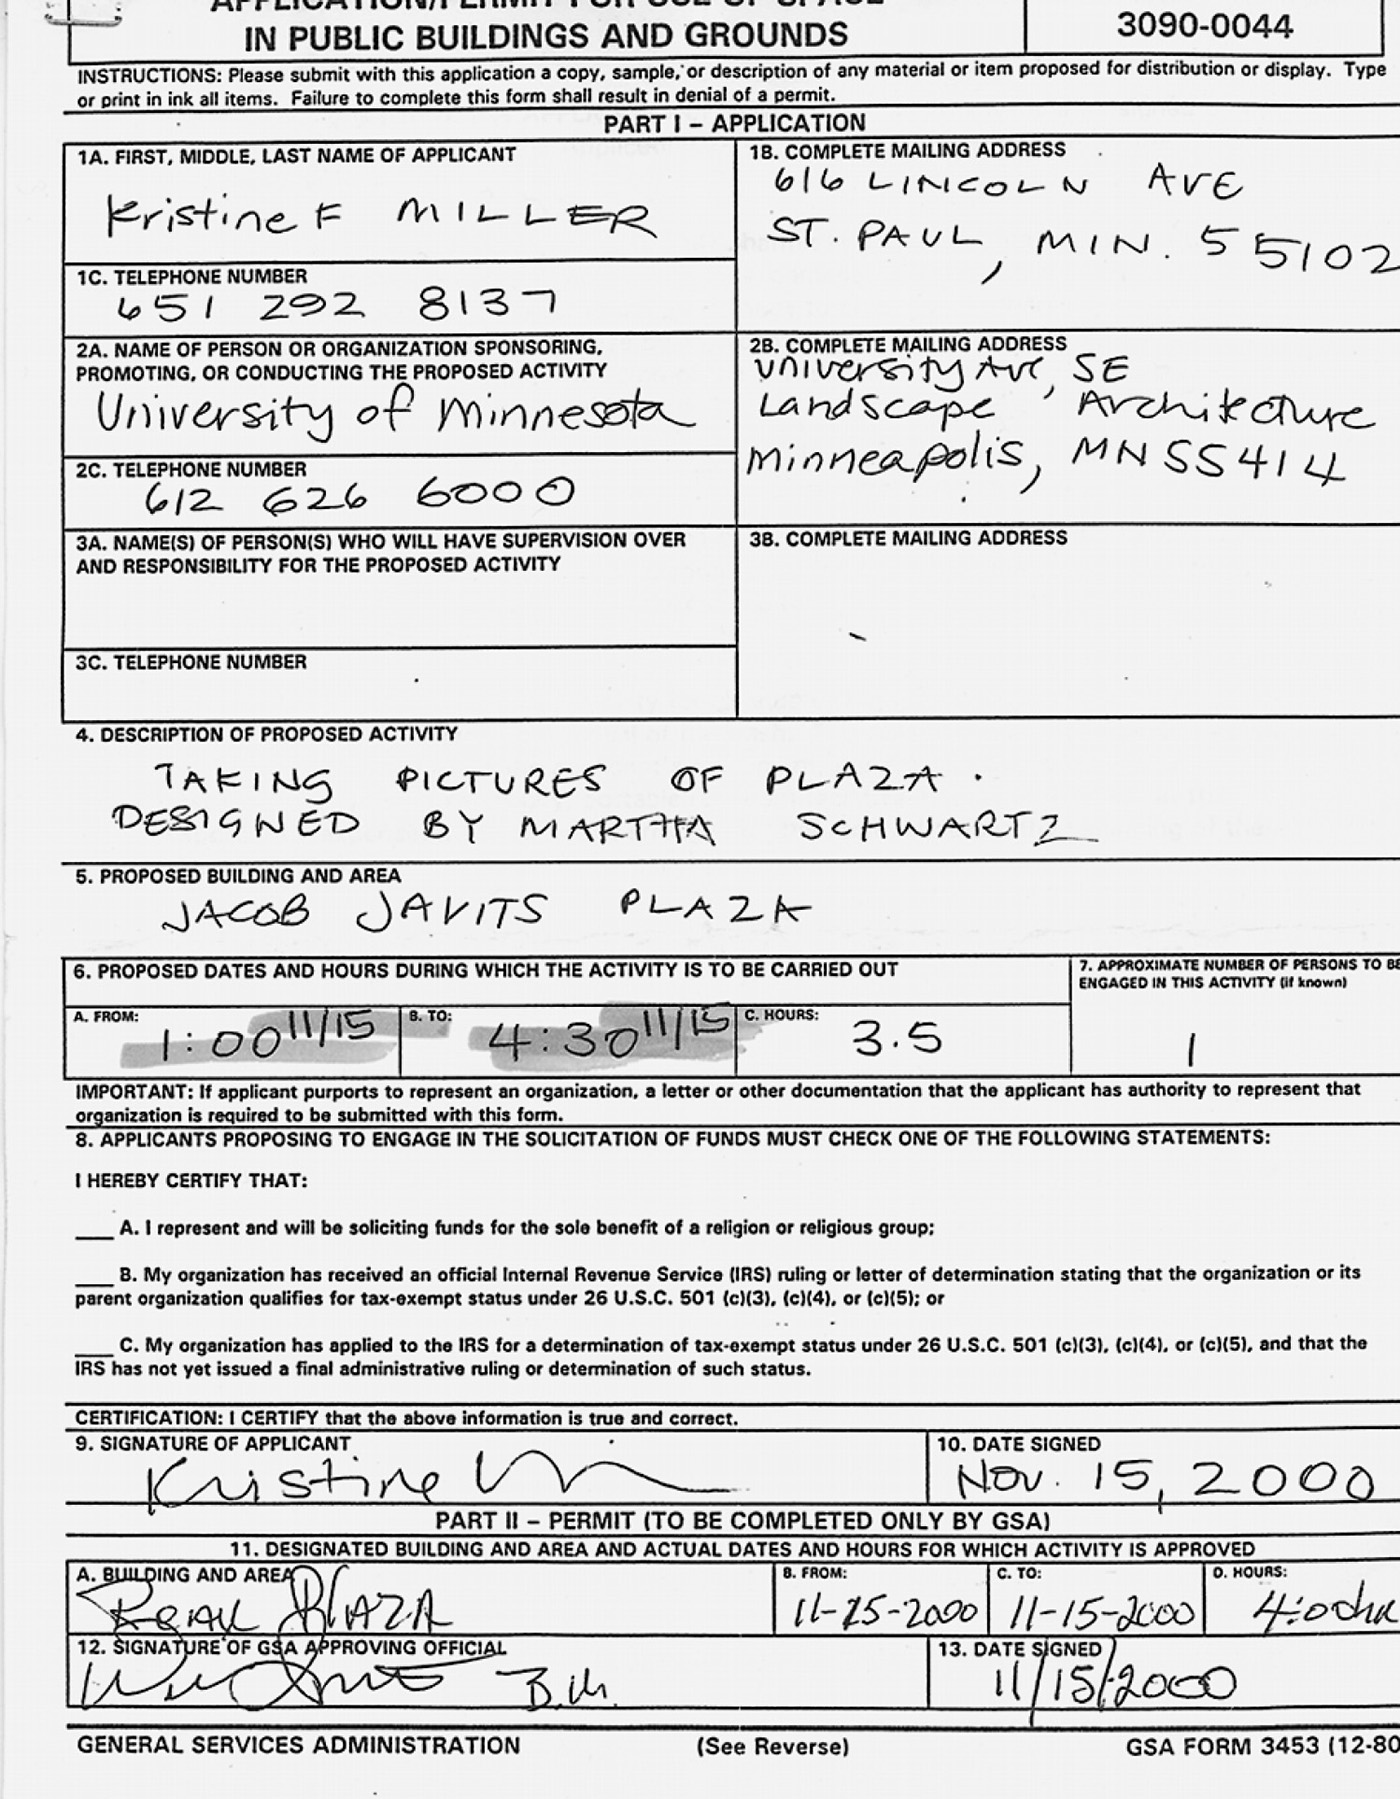 IN PUBLIC BUILDINGS AND GROUNDS
3090-0044
INSTRUCTIONS: Please submit with this application a copy, sample, or description of any material or item proposed for distribution or display. Type
or print in ink all items. Failure to complete this form shall result in denial of a permit.
PART I – APPLICATION
1A. FIRST, MIDDLE, LAST NAME OF APPLICANT
Kristine F MILLER
1B. COMPLETE MAILING ADDRESS
616 LINCOLN AVE
ST. PAUL, MIN. 55102
1C. TELEPHONE NUMBER
651 292 8137
2A. NAME OF PERSON OR ORGANIZATION SPONSORING,
PROMOTING, OR CONDUCTING THE PROPOSED ACTIVITY
University of Minnesota
2B. COMPLETE MAILING ADDRESS
University Ave, SE
Landscape Architecture
Minneapolis, MN 55414
2C. TELEPHONE NUMBER
612 626 6000
3A. NAME(S) OF PERSON(S) WHO WILL HAVE SUPERVISION OVER
AND RESPONSIBILITY FOR THE PROPOSED ACTIVITY
3B. COMPLETE MAILING ADDRESS
3C. TELEPHONE NUMBER
4. DESCRIPTION OF PROPOSED ACTIVITY
TAKING PICTURES OF PLAZA.
DESIGNED BY MARTHA SCHWARTZ
5. PROPOSED BUILDING AND AREA
JACOB JAVITS PLAZA
6. PROPOSED DATES AND HOURS DURING WHICH THE ACTIVITY IS TO BE CARRIED OUT
7. APPROXIMATE NUMBER OF PERSONS TO BE
ENGAGED IN THIS ACTIVITY (if known)
A. FROM:
1:00 11/15
B. TO:
4:30 11/15
C. HOURS:
3.5
1
IMPORTANT: If applicant purports to represent an organization, a letter or other documentation that the applicant has authority to represent that
organization is required to be submitted with this form.
8. APPLICANTS PROPOSING TO ENGAGE IN THE SOLICITATION OF FUNDS MUST CHECK ONE OF THE FOLLOWING STATEMENTS:
I HEREBY CERTIFY THAT:
___ A. I represent and will be soliciting funds for the sole benefit of a religion or religious group;
___ B. My organization has received an official Internal Revenue Service (IRS) ruling or letter of determination stating that the organization or its
parent organization qualifies for tax-exempt status under 26 U.S.C. 501 (c)(3), (c)(4), or (c)(5); or
___ C. My organization has applied to the IRS for a determination of tax-exempt status under 26 U.S.C. 501 (c)(3), (c)(4), or (c)(5), and that the
IRS has not yet issued a final administrative ruling or determination of such status.
CERTIFICATION: I CERTIFY that the above information is true and correct.
9. SIGNATURE OF APPLICANT
Kristine
10. DATE SIGNED
Nov. 15, 2000
PART II – PERMIT (TO BE COMPLETED ONLY BY GSA)
11. DESIGNATED BUILDING AND AREA AND ACTUAL DATES AND HOURS FOR WHICH ACTIVITY IS APPROVED
A. BUILDING AND AREA
PLAZA
B. FROM:
11-15-2000
C. TO:
11-15-2000
D. HOURS:
12. SIGNATURE OF GSA APPROVING OFFICIAL
B.M.
13. DATE SIGNED
11/15/2000
GENERAL SERVICES ADMINISTRATION
(See Reverse)
GSA FORM 3453 (12-80